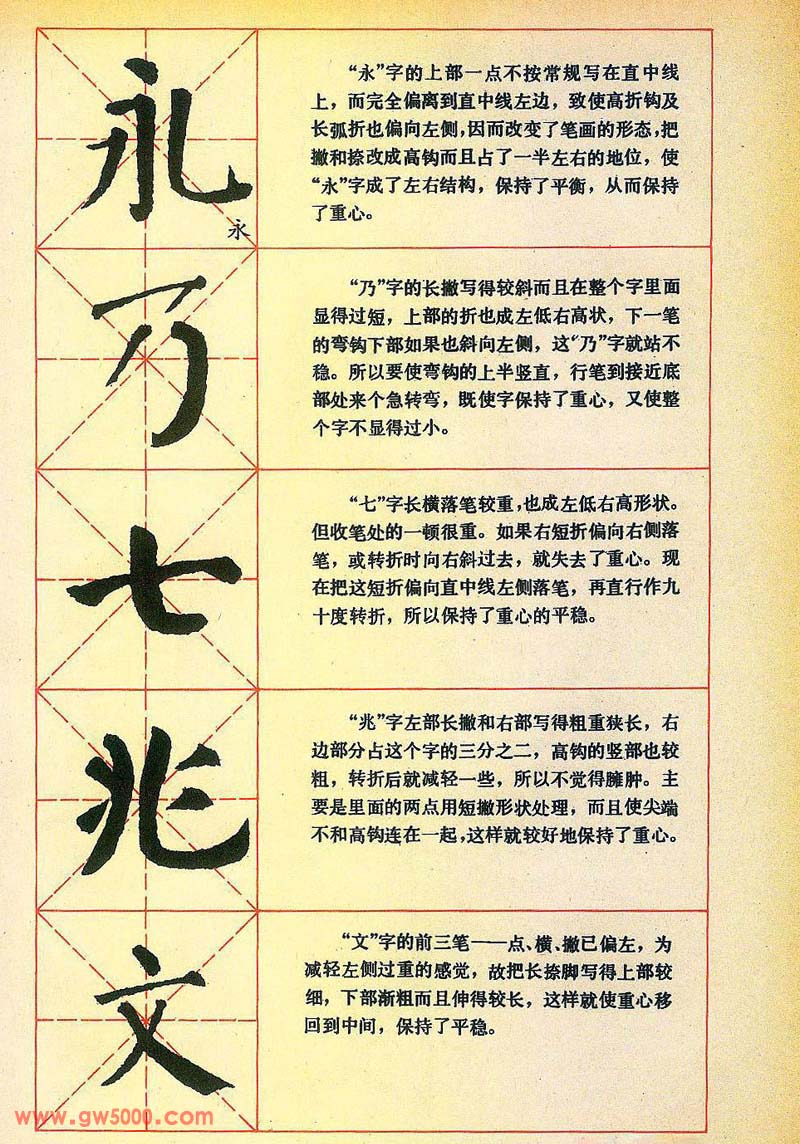 永
永
“永”字的上部一点不按常规写在直中线
上，而完全偏离到直中线左边，致使高折钩及
长弧折也偏向左侧，因而改变了笔画的形态，把
撇和捺改成高钩而且占了一半左右的地位，使
“永”字成了左右结构，保持了平衡，从而保持
了重心。
乃
“乃”字的长撇写得较斜而且在整个字里面
显得过短，上部的折也成左低右高状，下一笔
的弯钩下部如果也斜向左侧，这“乃”字就站不
稳。所以要使弯钩的上半竖直，行笔到接近底
部处来个急转弯，既使字保持了重心，又使整
个字不显得过小。
七
“七”字长横落笔较重，也成左低右高形状。
但收笔处的一顿很重。如果右短折偏向右侧落
笔，或转折时向右斜过去，就失去了重心。现
在把这短折偏向直中线左侧落笔，再直行作九
十度转折，所以保持了重心的平稳。
兆
“兆”字左部长撇和右部写得粗重狭长，右
边部分占这个字的三分之二，高钩的竖部也较
粗，转折后就减轻一些，所以不觉得臃肿。主
要是里面的两点用短撇形状处理，而且使尖端
不和高钩连在一起，这样就较好地保持了重心。
文
“文”字的前三笔——点、横、撇已偏左，为
减轻左侧过重的感觉，故把长捺脚写得上部较
细，下部渐粗而且伸得较长，这样就使重心移
回到中间，保持了平稳。
www.gw5000.com